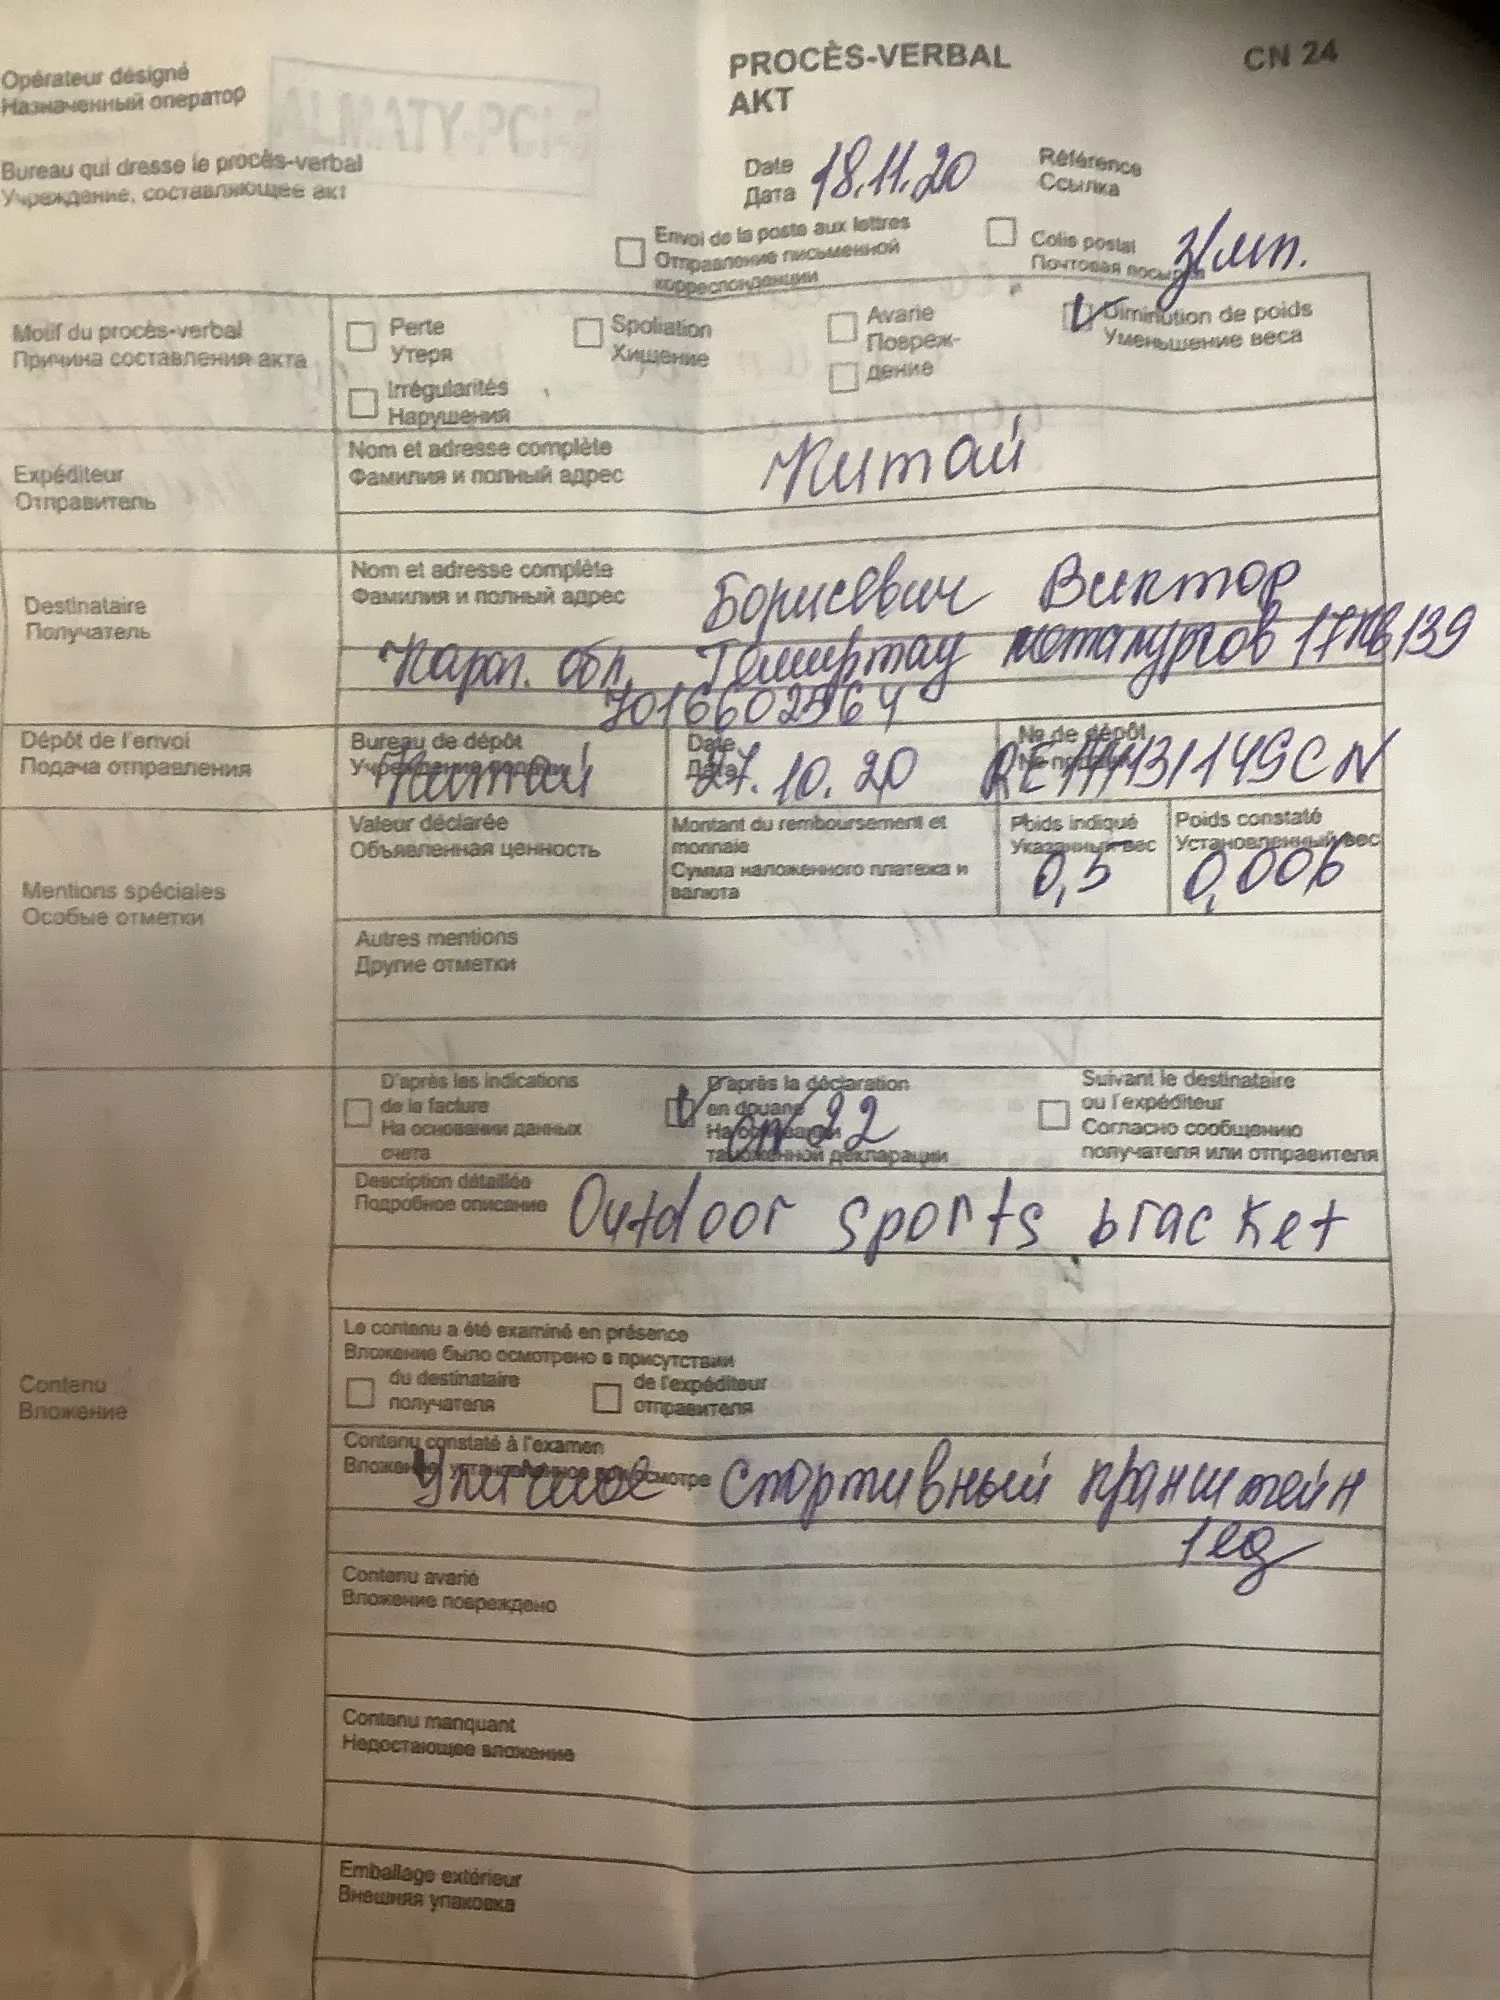 PROCÈS-VERBAL
АКТ
CN 24
Opérateur désigné
Назначенный оператор
ALMATY-PCI-5
Bureau qui dresse le procès-verbal
Учреждение, составляющее акт
Date
Дата
18.11.20
Référence
Ссылка
Envoi de la poste aux lettres
Отправление письменной
корреспонденции
Colis postal
Почтовая посылка
з/мп.
Motif du procès-verbal
Причина составления акта
Perte
Утеря
Spoliation
Хищение
Avarie
Повреж-
дение
Diminution de poids
Уменьшение веса
Irrégularités
Нарушения
Expéditeur
Отправитель
Nom et adresse complète
Фамилия и полный адрес
Китай
Destinataire
Получатель
Nom et adresse complète
Фамилия и полный адрес
Борисевич Виктор
Карал. обл. Темиртау металургов 17 кв 139
Dépôt de l'envoi
Подача отправления
Bureau de dépôt
Учреждение подачи
Китай
Date
Дата
27.10.20
№ de dépôt
Mentions spéciales
Особые отметки
Valeur déclarée
Объявленная ценность
Montant du remboursement et
monnaie
Сумма наложенного платежа и
валюта
Poids indiqué
Указанный вес
0,5
Poids constaté
Установленный вес
0,006
Autres mentions
Другие отметки
D'après les indications
de la facture
На основании данных
счета
D'après la déclaration
en douane
На основании
таможенной декларации
CN 22
Suivant le destinataire
ou l'expéditeur
Согласно сообщению
получателя или отправителя
Description détaillée
Подробное описание
Outdoor sports bracket
Contenu
Вложение
Le contenu a été examiné en présence
Вложение было осмотрено в присутствии
du destinataire
получателя
de l'expéditeur
отправителя
Contenu constaté à l'examen
Вложение, установленное при осмотре
Уличное спортивный кранштейн
1 ед
Contenu avarié
Вложение повреждено
Contenu manquant
Недостающее вложение
Emballage extérieur
Внешняя упаковка